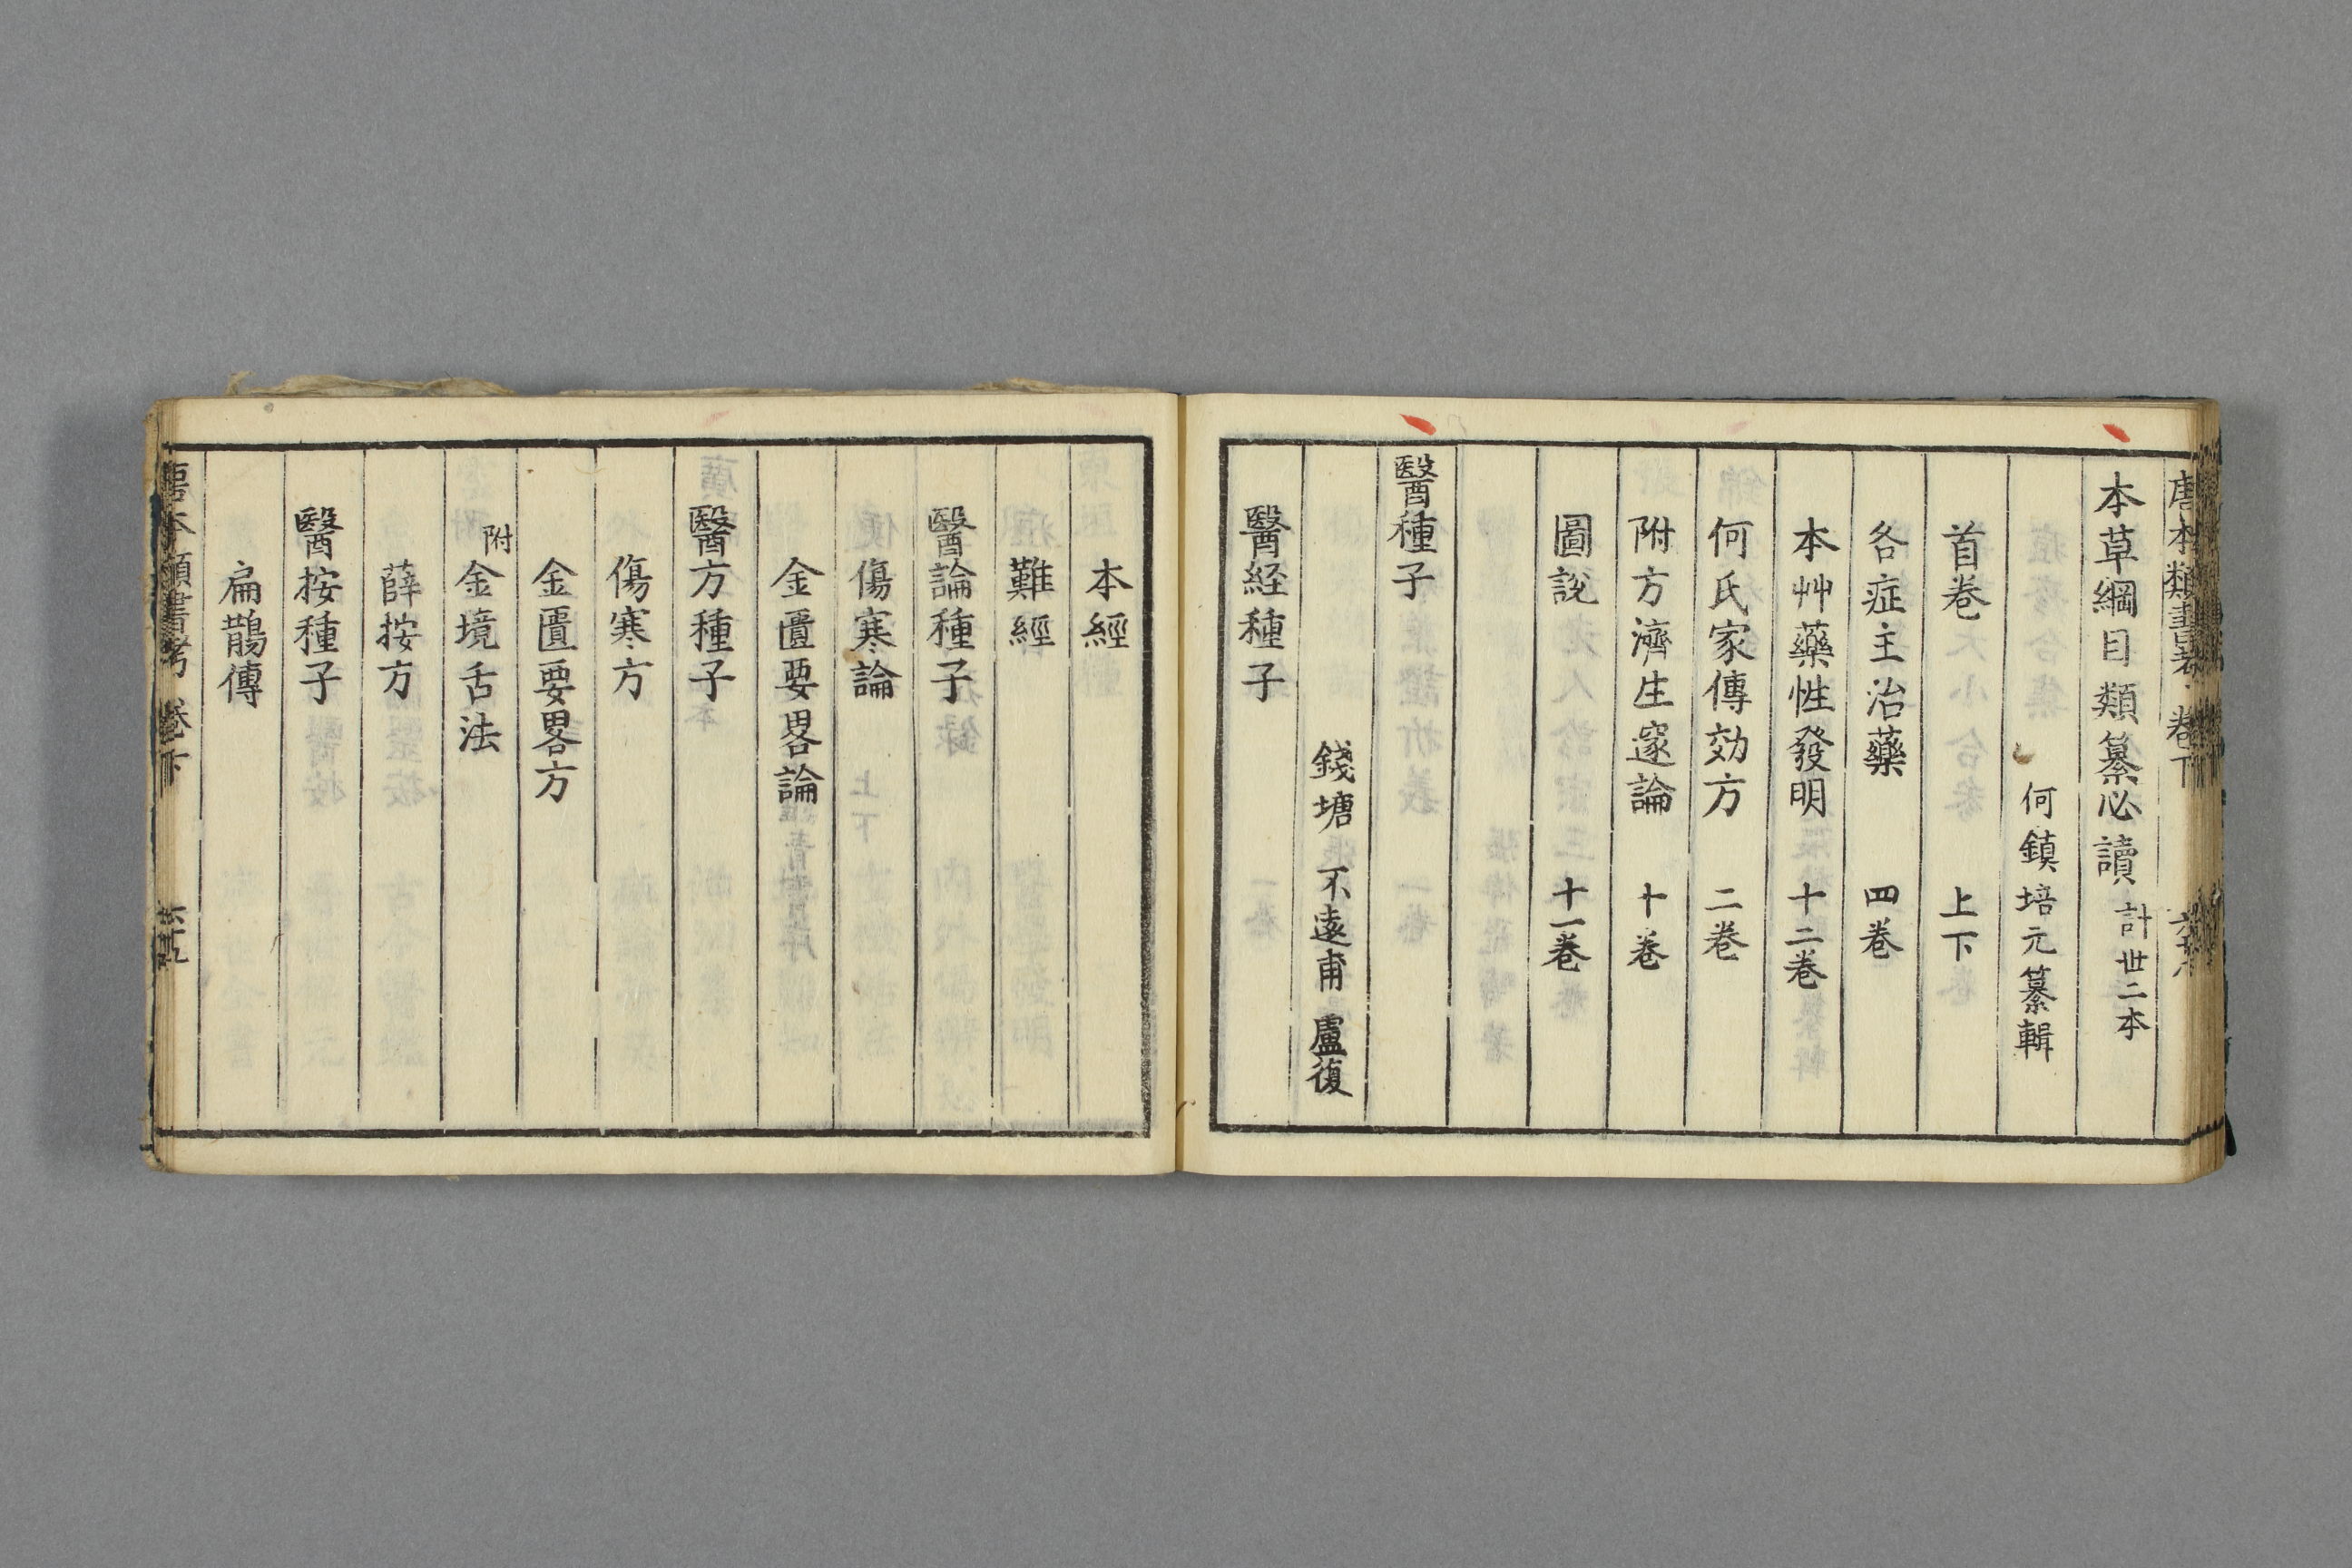 唐本類書考 卷下
本草綱目類纂必讀 計卅二本
何鎮培元纂輯
首卷 上下
各症主治藥 四卷
本艸藥性發明 十二卷
何氏家傳効方 二卷
附方濟生邃論 十卷
圖說 十一卷
醫種子
錢塘 不遠甫 盧復
醫経種子
本經
難經
醫論種子
傷寒論
金匱要畧論
醫方種子
傷寒方
金匱要畧方
附金境舌法
薛按方
醫按種子
扁鵲傳
唐本類書考 卷下